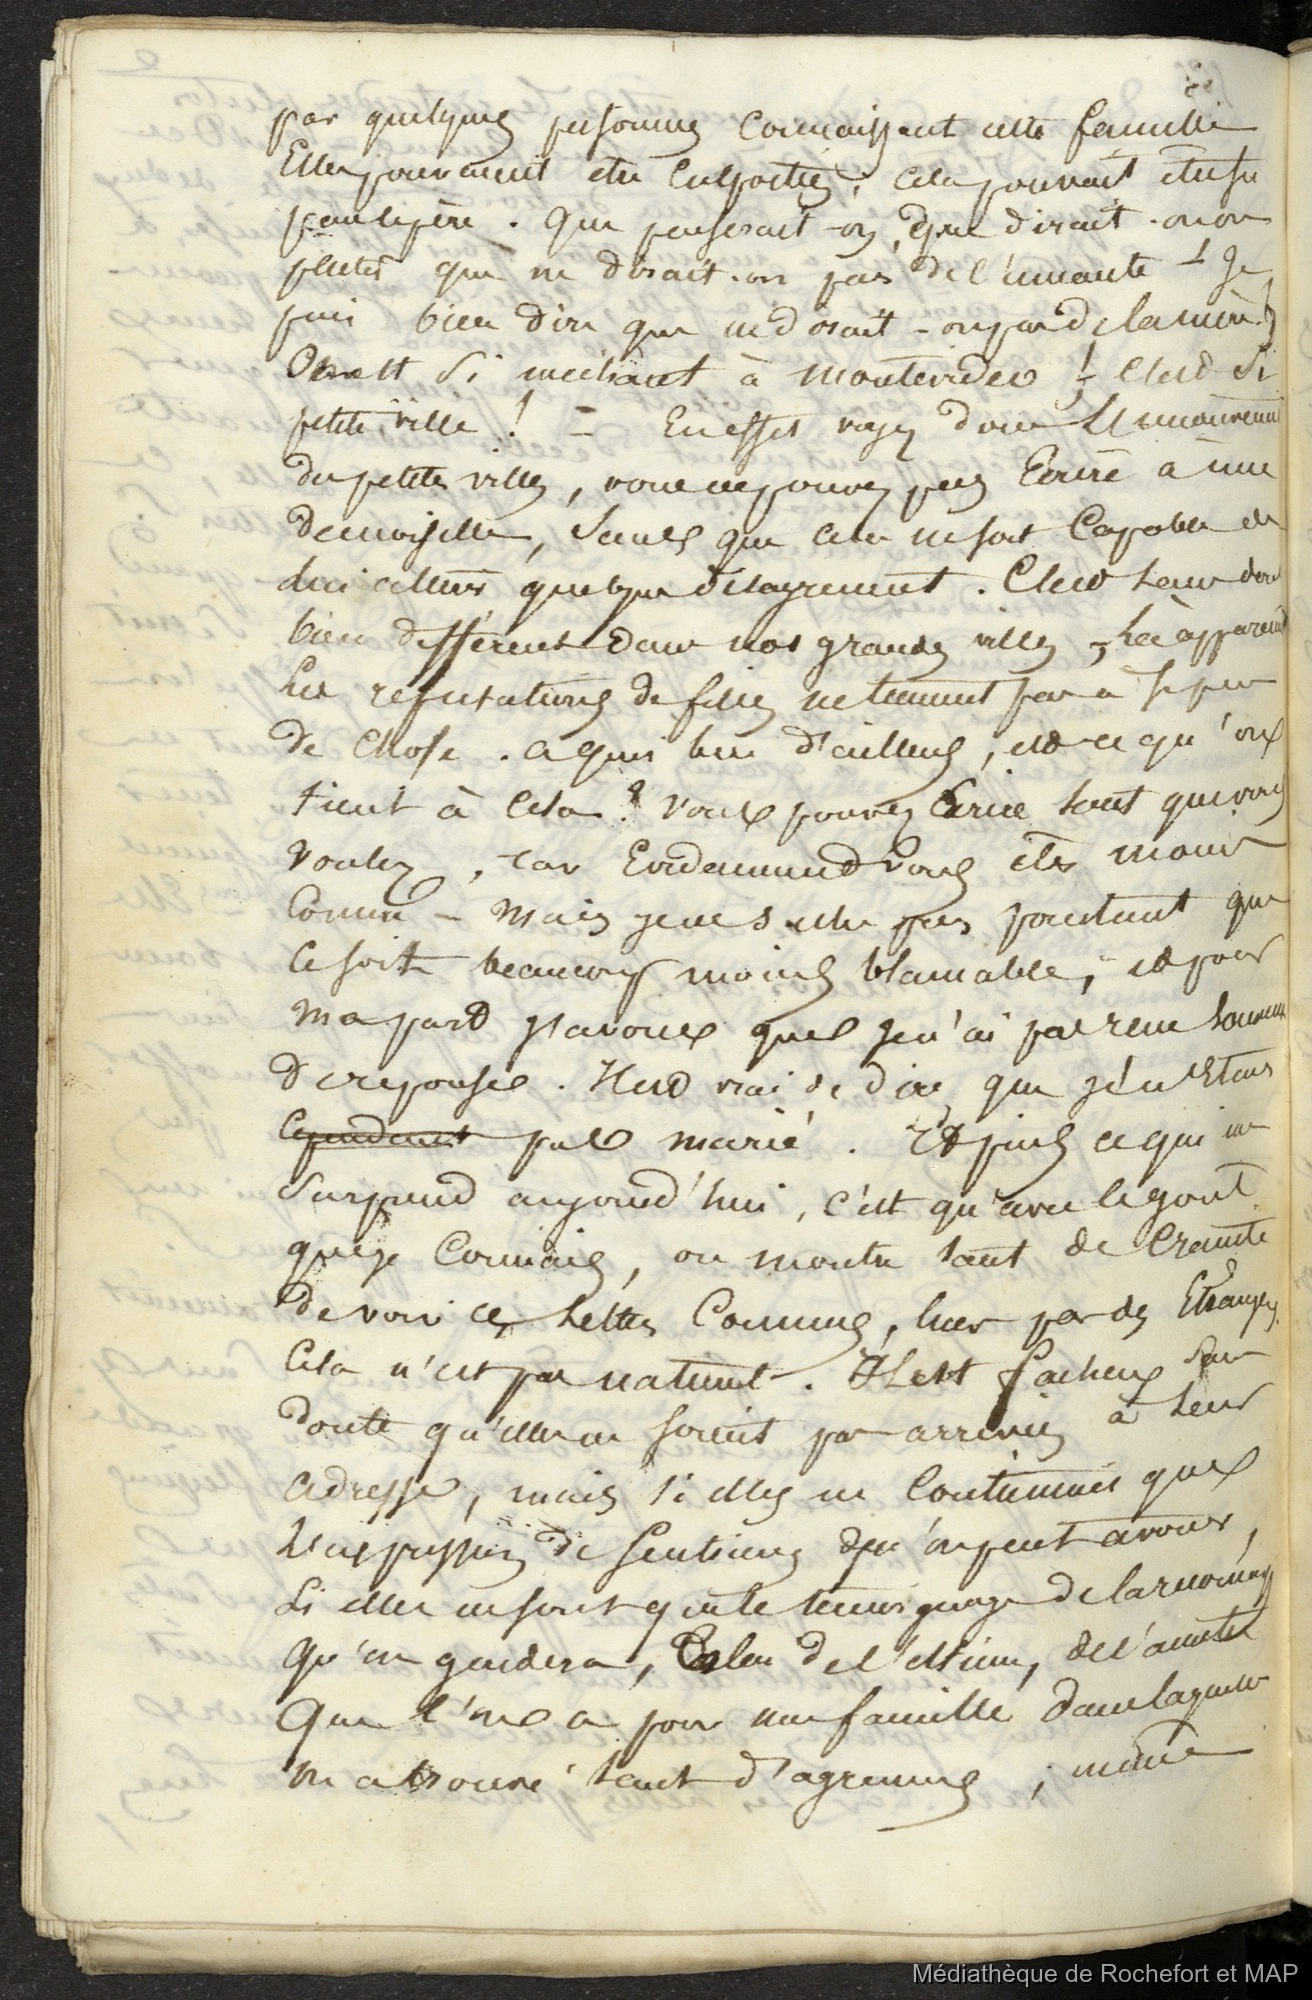 par quelques personnes connaissant cette famille
Elles pouvaient etre colportées, cela pouvait etre su
par le père. Que penserait-on, que dirait-on ou
plutot que ne dirait-on pas de l'amante! Je
puis bien dire que ne dirait-on pas de la mère!
On est si mechant à Montevideo! C'est si
petite ville! = En effet voyez donc l'inconvenient
des petites villes, vous ne pouvez pas Ecrire à une
demoiselle, sans que cela ne soit capable de
lui attirer quelque désagrement. C'est sans doute
bien different dans nos grandes villes, là apparemment
les reputations de filles ne tiennent pas à si peu
de chose. a quoi bon d'ailleurs, est-ce qu'on
tient à cela? Vous pouvez Ecrire tant que vous
voulez, car Evidemment vous êtes moins
connu - Mais je ne suis pas pourtant que
ce soit beaucoup moins blamable, et pour
ma part j'avoue que je n'ai pas reçu
de reponses. Il est vrai de dire que je n'étais
cependant pas marié. Et puis ce qui me
surprend aujourd'hui, c'est qu'avec le gout
que je connais, on montre tant de crainte
de voir ces lettres connues, lues par des Etrangers.
Cela n'est pas naturel. Il est facheux sans
doute qu'elles ne soient pas arrivées à leur
adresse, mais si elles ne contiennent que
l'expression de sentimens qu'on peut avouer,
si elles ne sont que le temoignage de la
qu'on gardera, de l'estime, de l'amitié
que l'on a pour une famille dans laquelle
on a trouvé tant d'agremens, même
Médiathèque de Rochefort et MAP